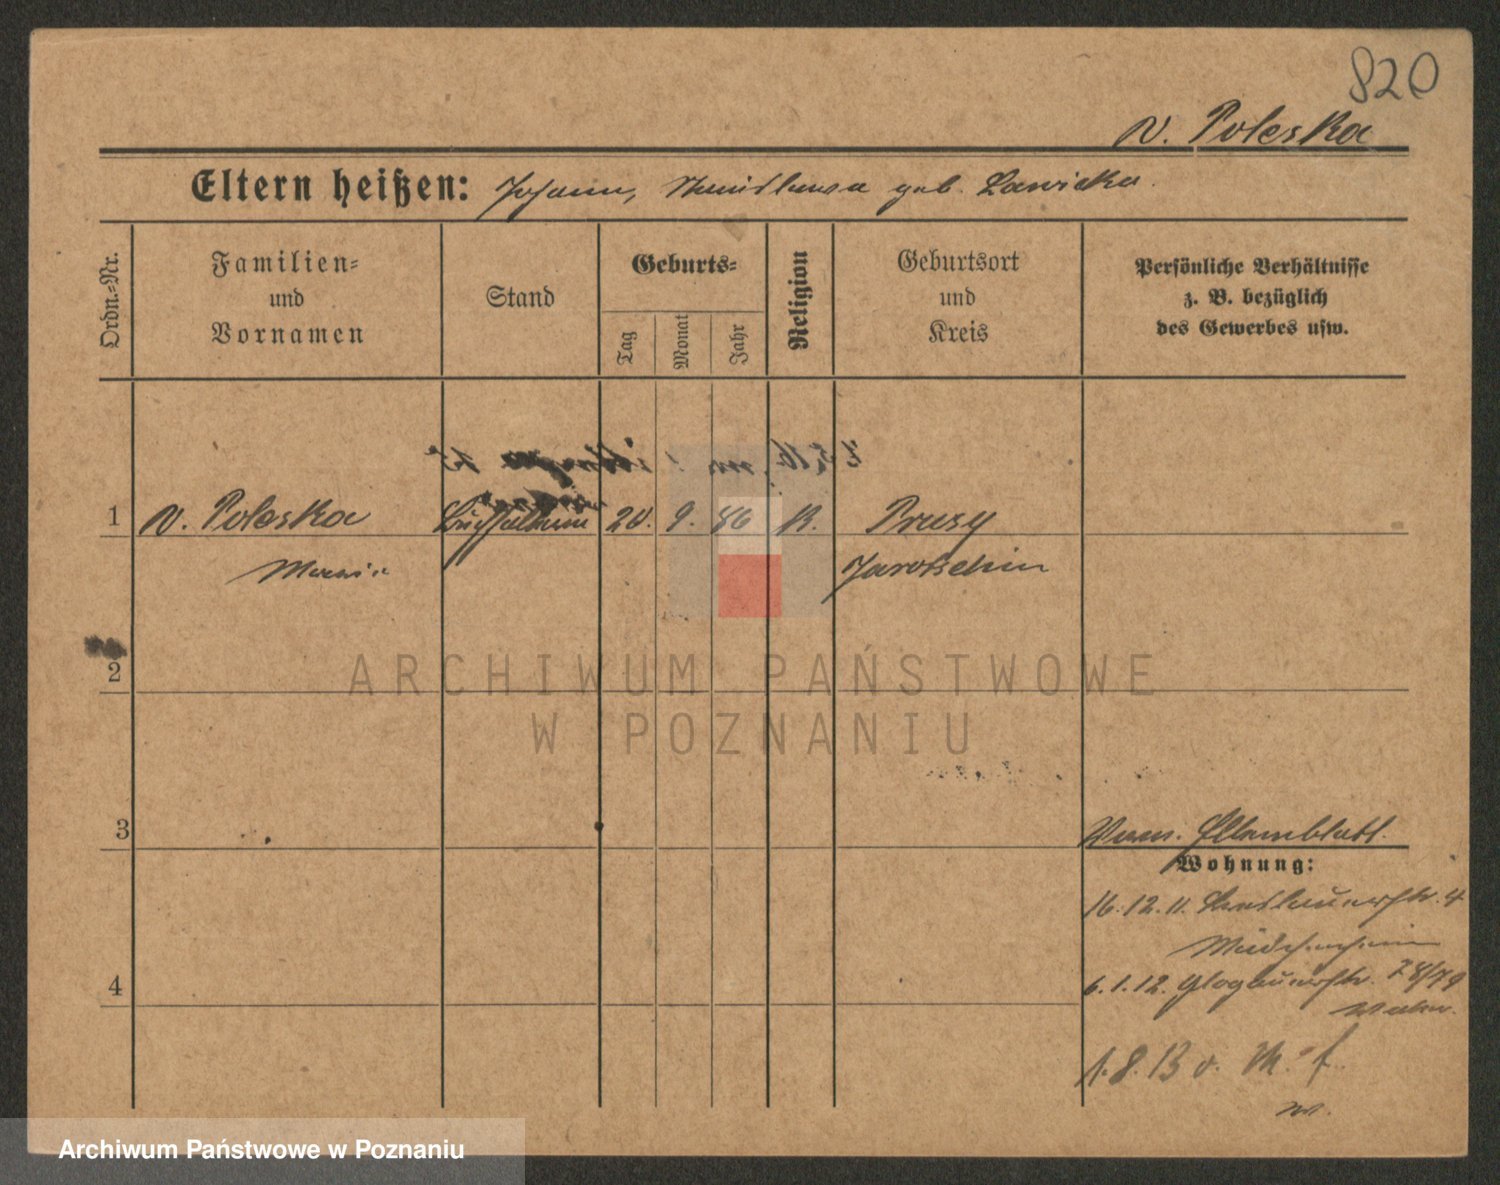 820
v. Poleska
Eltern heißen: Johann, Stanislawa geb. Lawicka.
Ordn.-Nr.
Familien-
und
Vornamen
Stand
Geburts-
Tag
Monat
Jahr
Religion
Geburtsort
und
Kreis
Persönliche Verhältnisse
z. B. bezüglich
des Gewerbes usw.
1 v. Poleska 20. 9. 86 K. Prusy
Maria Jarotschin
2
ARCHIWUM PAŃSTWOWE
W POZNANIU
3
Wohnung:
16.12.11. 4
4
6.1.12. Glogauerstr. 78/79
1.8.13 v.
Archiwum Państwowe w Poznaniu